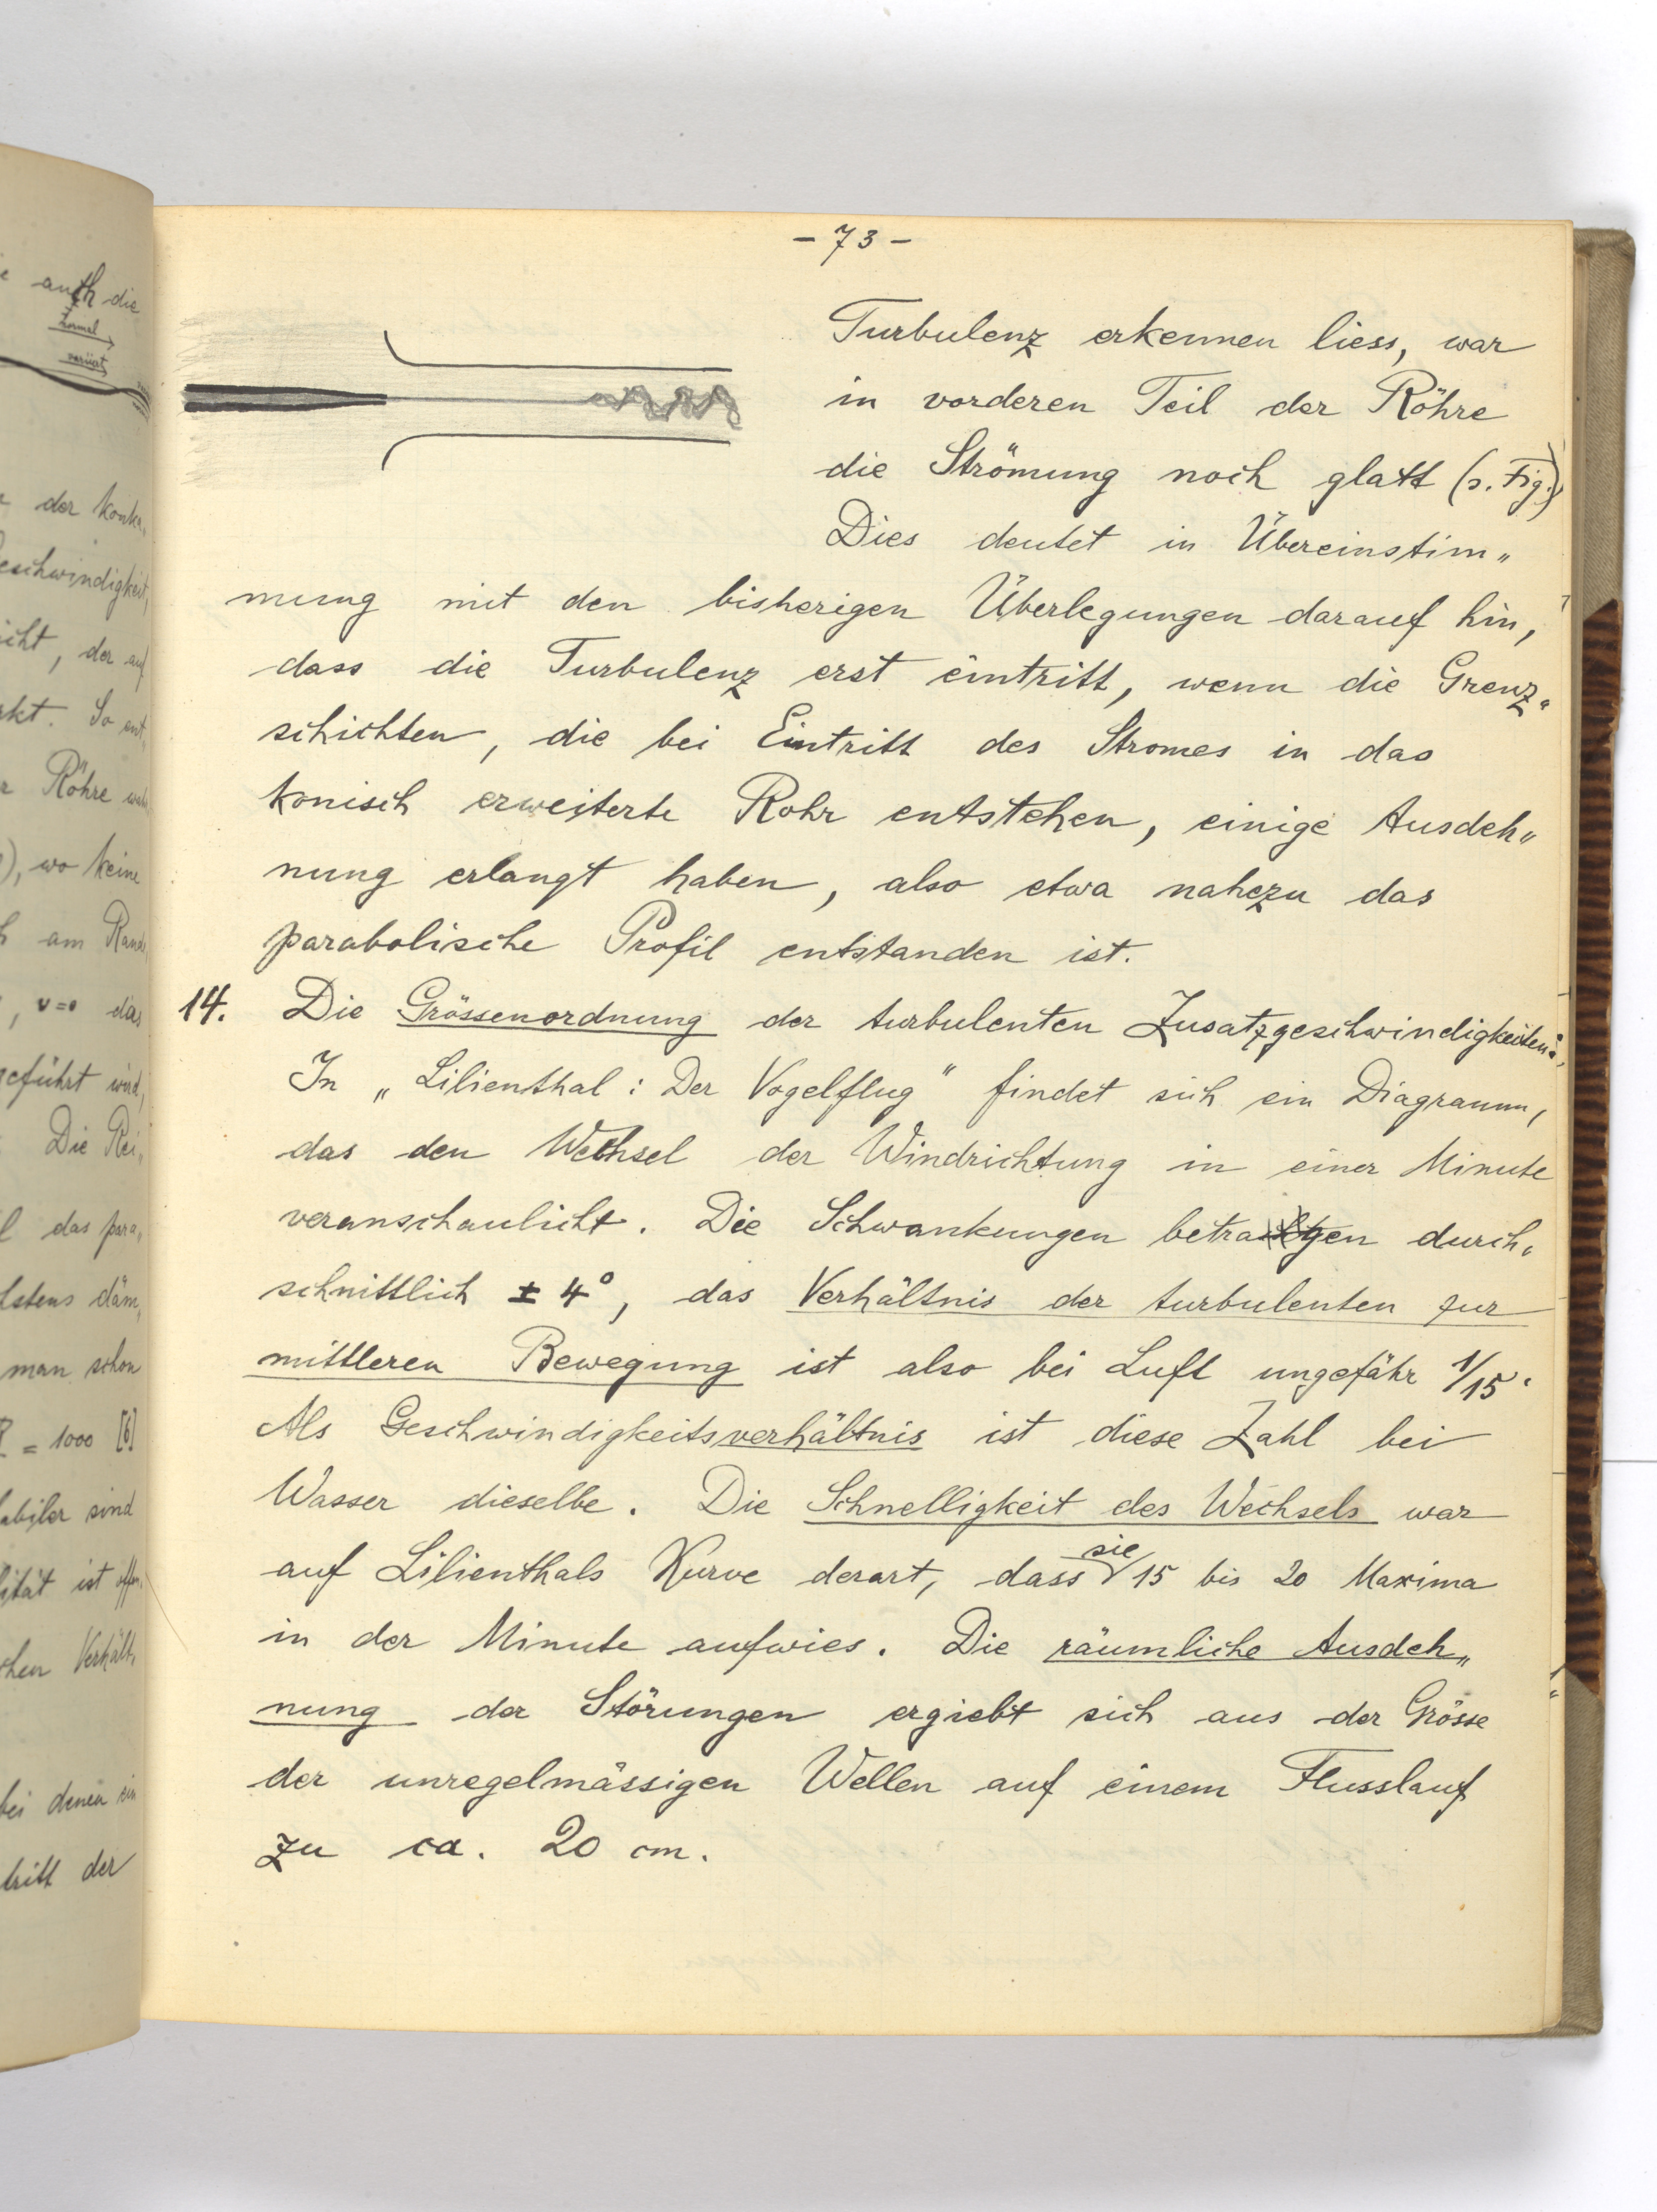 - 73 -
Turbulenz erkennen liess, war
in vorderen Teil der Röhre
die Strömung noch glatt (s. Fig.)
Dies deutet in Übereinstim„
mung mit den bisherigen Überlegungen darauf hin,
dass die Turbulenz erst eintritt, wenn die Grenz„
schichten, die bei Eintritt des Stromes in das
konisch erweiterte Rohr entstehen, einige Ausdeh„
nung erlangt haben, also etwa nahezu das
parabolische Profil entstanden ist.
14. Die Grössenordnung der turbulenten Zusatzgeschwindigkeiten:
In „Lilienthal: Der Vogelflug" findet sich ein Diagramm,
das den Wechsel der Windrichtung in einer Minute
veranschaulicht. Die Schwankungen betragen durch„
schnittlich ± 4°, das Verhältnis der turbulenten zur
mittleren Bewegung ist also bei Luft ungefähr 1/15.
Als Geschwindigkeitsverhältnis ist diese Zahl bei
Wasser dieselbe. Die Schnelligkeit des Wechsels war
auf Lilienthals Kurve derart, dass sie 15 bis 20 Maxima
in der Minute aufwies. Die räumliche Ausdeh„
nung der Störungen ergiebt sich aus der Grösse
der unregelmässigen Wellen auf einem Flusslauf
zu ca. 20 cm.
auch die
normal
variiert
der konka„
eschwindigkeit,
icht, der auf
rkt. So ent„
r Röhre
), wo keine
am Rande
, v=0 das
geführt wird,
Die Rei„
das para„
stens däm„
man schon
R = 1000 [6]
labiler sind
lität ist offen„
chen Verhält„
bei denen ein
tritt der